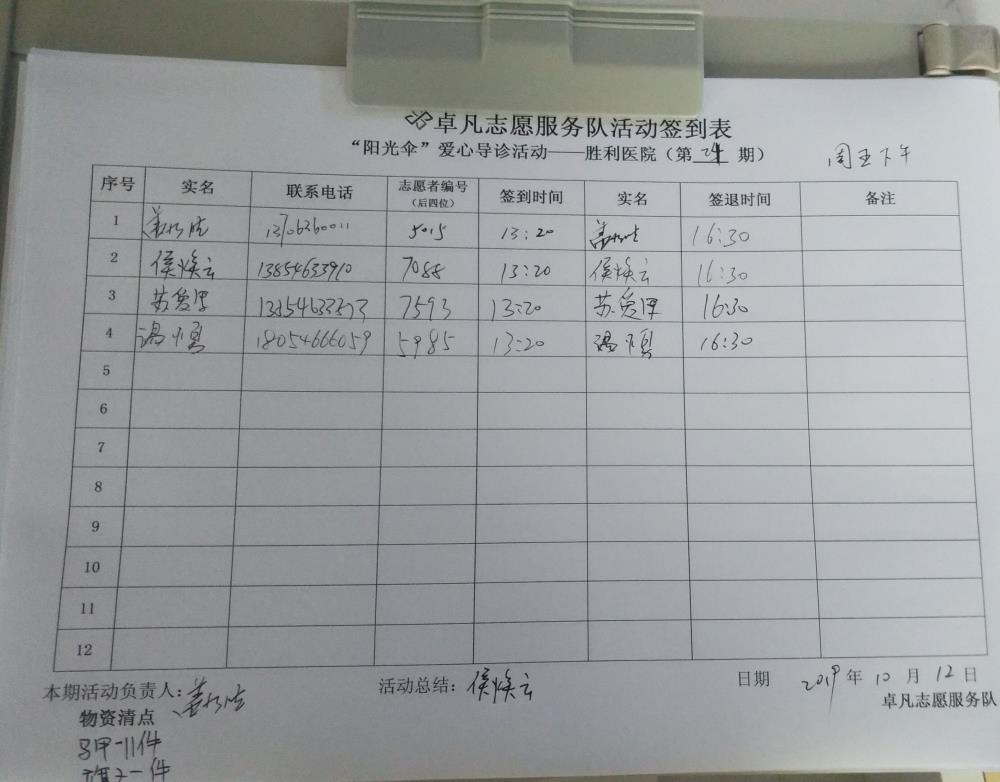 卓凡志愿服务队活动签到表
“阳光伞”爱心导诊活动——胜利医院（第 期）
周五下午
序号 实名 联系电话 志愿者编号（后四位） 签到时间 实名 签退时间 备注
1 5015 13:20 16:30
2 侯焕云 13854633910 7088 13:20 侯焕云 16:30
3 苏爱军 7593 13:20 苏爱军 16:30
4 18054666059 5985 13:20 16:30
5
6
7
8
9
10
11
12
本期活动负责人： 活动总结：侯焕云 日期 2019年10月12日
物资清点 卓凡志愿服务队
马甲-11件
旗子一件